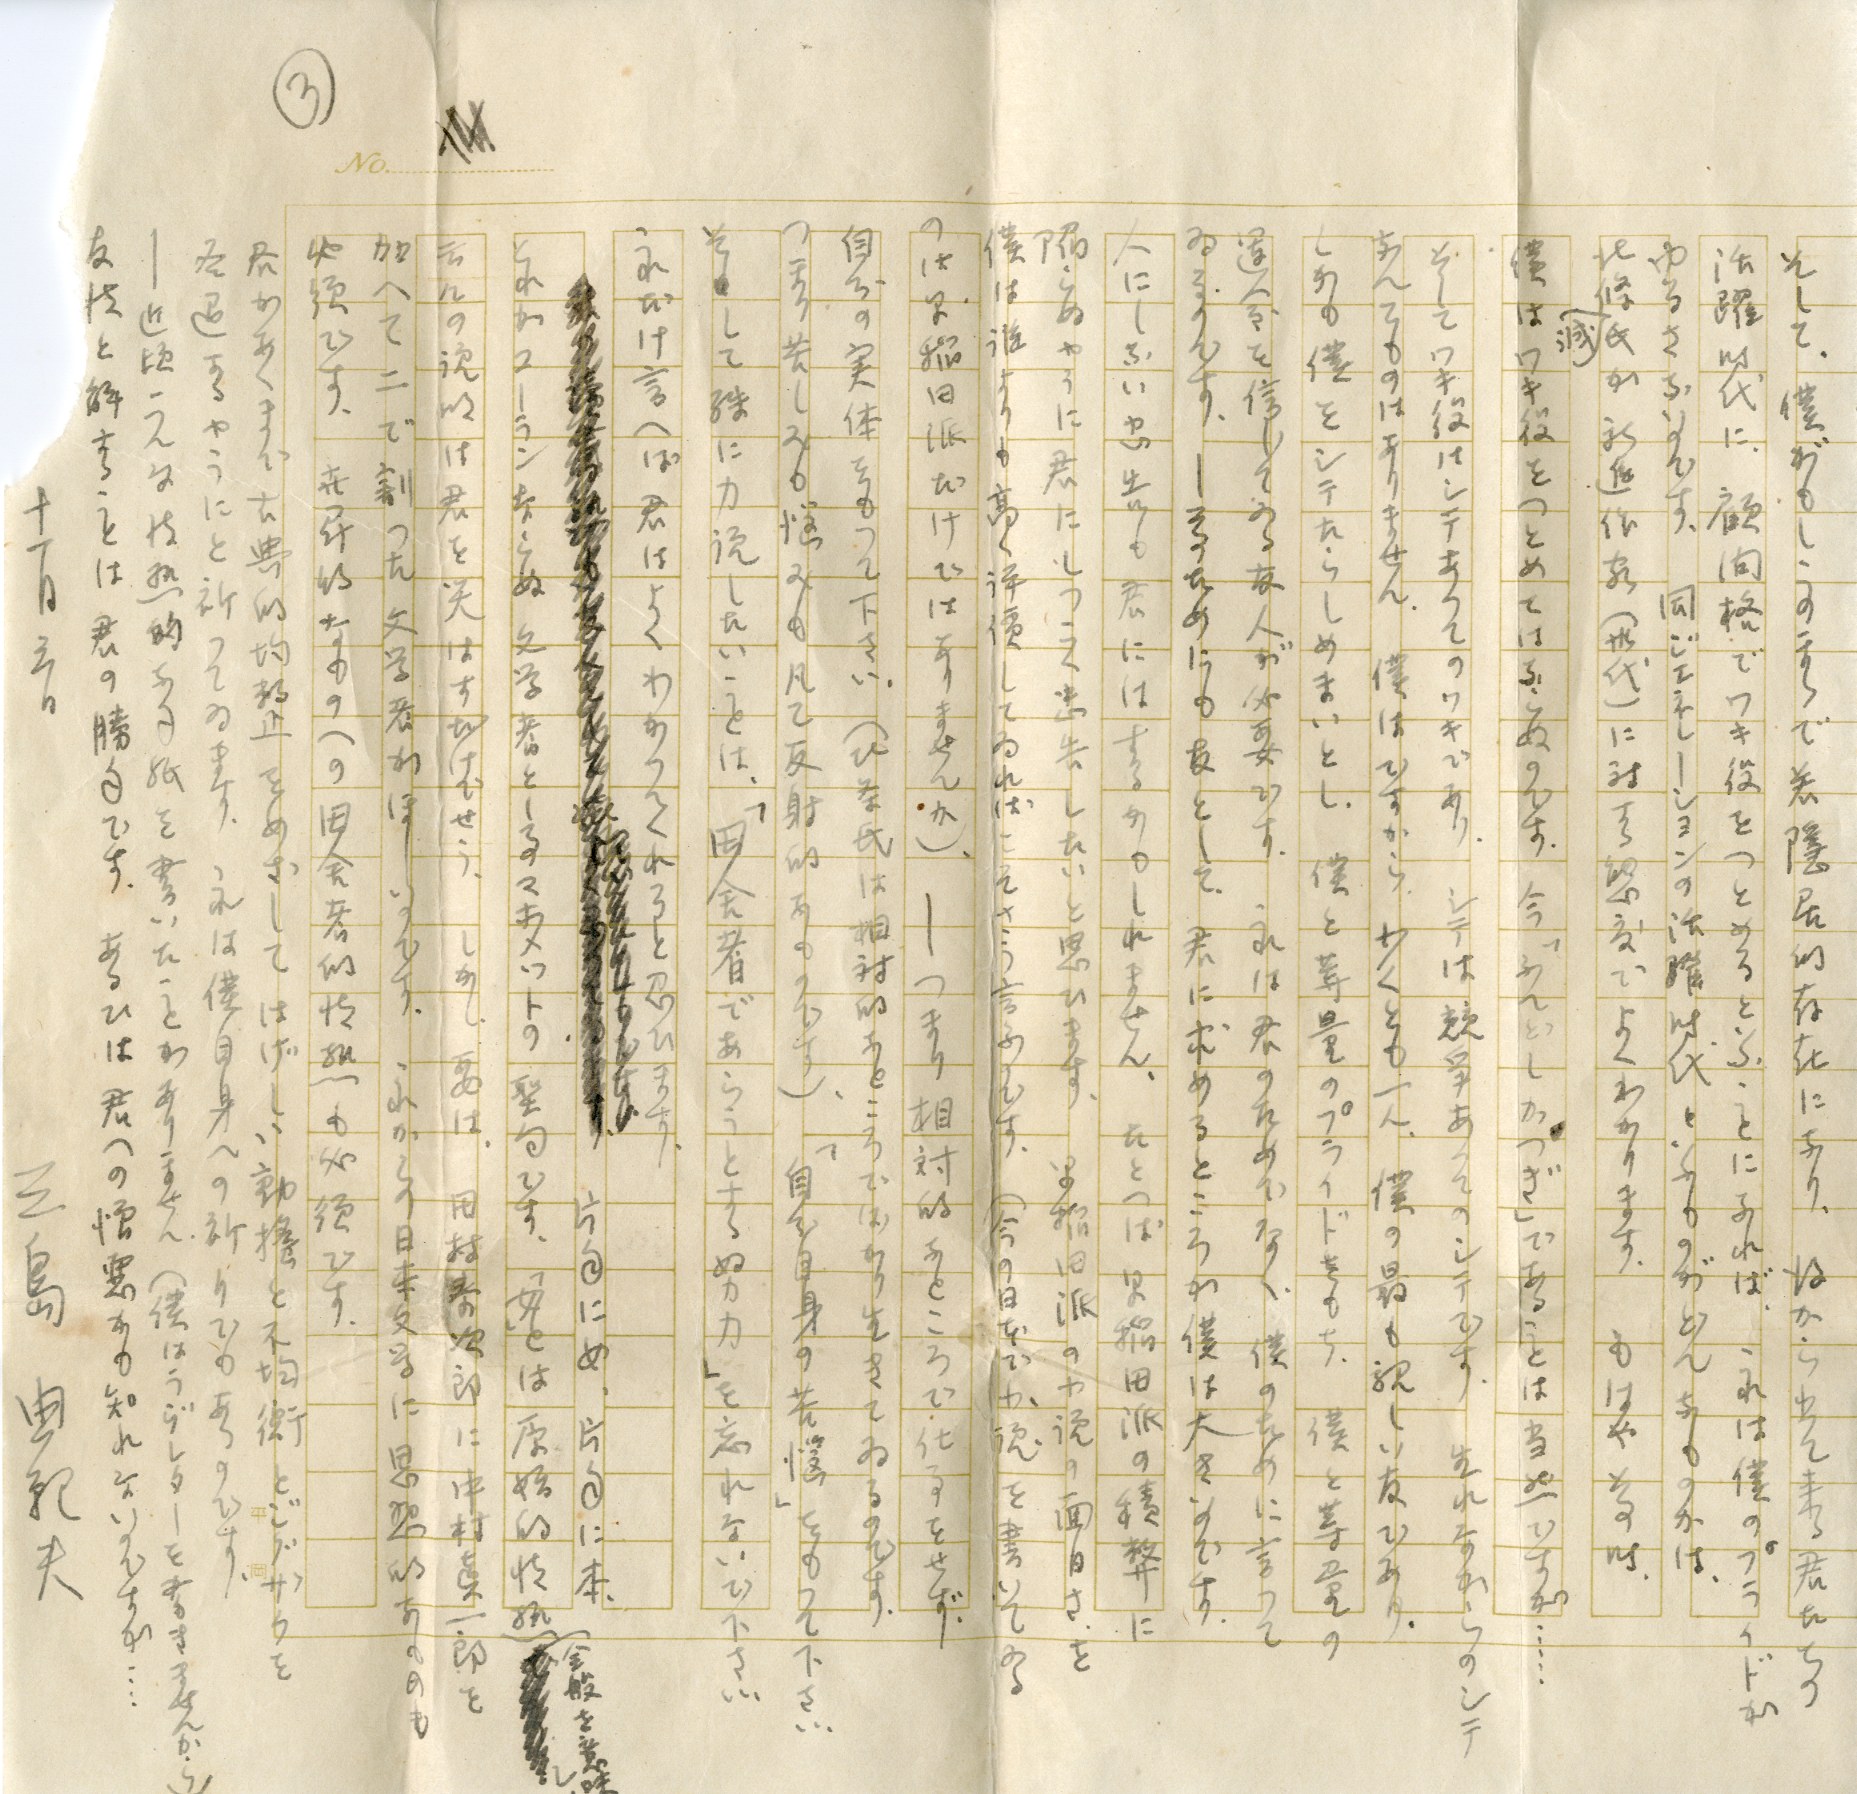 ③
No.
そして、僕がもしこのまゝで若隠居的存在になり、後から出て来る君たちの
活躍時代に、顧問格でワキ役をつとめるといふことになれば、これは僕のプライドが
ゆるさないのです。同ジェネレーションの活躍時代といふものがどんなものかは、
北條氏が新進作家(無代)に対する態度でよくわかります。もはやその時、
(滅)
僕はワキ役をつとめてはゐぬのです。今「ふんどしかつぎ」であることは当然ですが……
そしてワキ役はシテあつてのワキであり、シテは競争あつてのシテです。生れながらのシテ
なんてものはありません。僕はですから、少くとも一人、僕の最も親しい友であり、
しかも僕をシテたらしめまいとし、僕と等量のプライドをもち、僕と等量の
運命を信じてゐる友人が必要です。これは君のためでなく、僕のために言つて
ゐるのです。―そのためにの友として、君に求めるところが僕は大きいのです。
人にしない忠告も君にはするかもしれません。たとへば早稲田派の積弊に
陥らぬやうに君にしつこく忠告したいと思ひます。早稲田派の小説の面白さを
僕は誰よりも高く評価してゐればこそさう言ふのです。(今の日本で小説を書いてゐる
のは早稲田派だけではありませんか)、―つまり相対的なところで仕事をせず、
自分の実体をもつて下さい。( 氏は相対的なところでばかり生きてゐるのです。
つまり苦しみも悩みも凡て反射的なものです)、「自分自身の苦悩」をもつて下さい、
そして殊に力説したいことは、「田舎者であらうとする努力」を忘れないで下さい
これだけ言へば君はよくわかつてくれると思ひます。
片句にめ、片句に本、
それがコーランならぬ文学者としるマホメットの聖句です。「 」とは原始的情熱(全般を意味し
の説明は君を笑はすだけでせう、しかし、要は、田村泰次郎に中村真一郎を
加へて二で割つた文学者がほしいのです。これからの日本文学に思想的なものも
必須です、 的なもの(の田舎者的情熱)も必須です。
君があくまで古典的均整をめざしてはげしい動揺と不均衡とジグザグを
通過するやうにと祈つてゐます。これは僕自身への祈りでもあるのです。
―近頃こんな情熱的な手紙を書いたことがありません、(僕はラヴレターを書きませんから)
友情と解することは君の勝手です。あるひは君への憎悪かも知れないのですが…
十一月三日
三島由紀夫